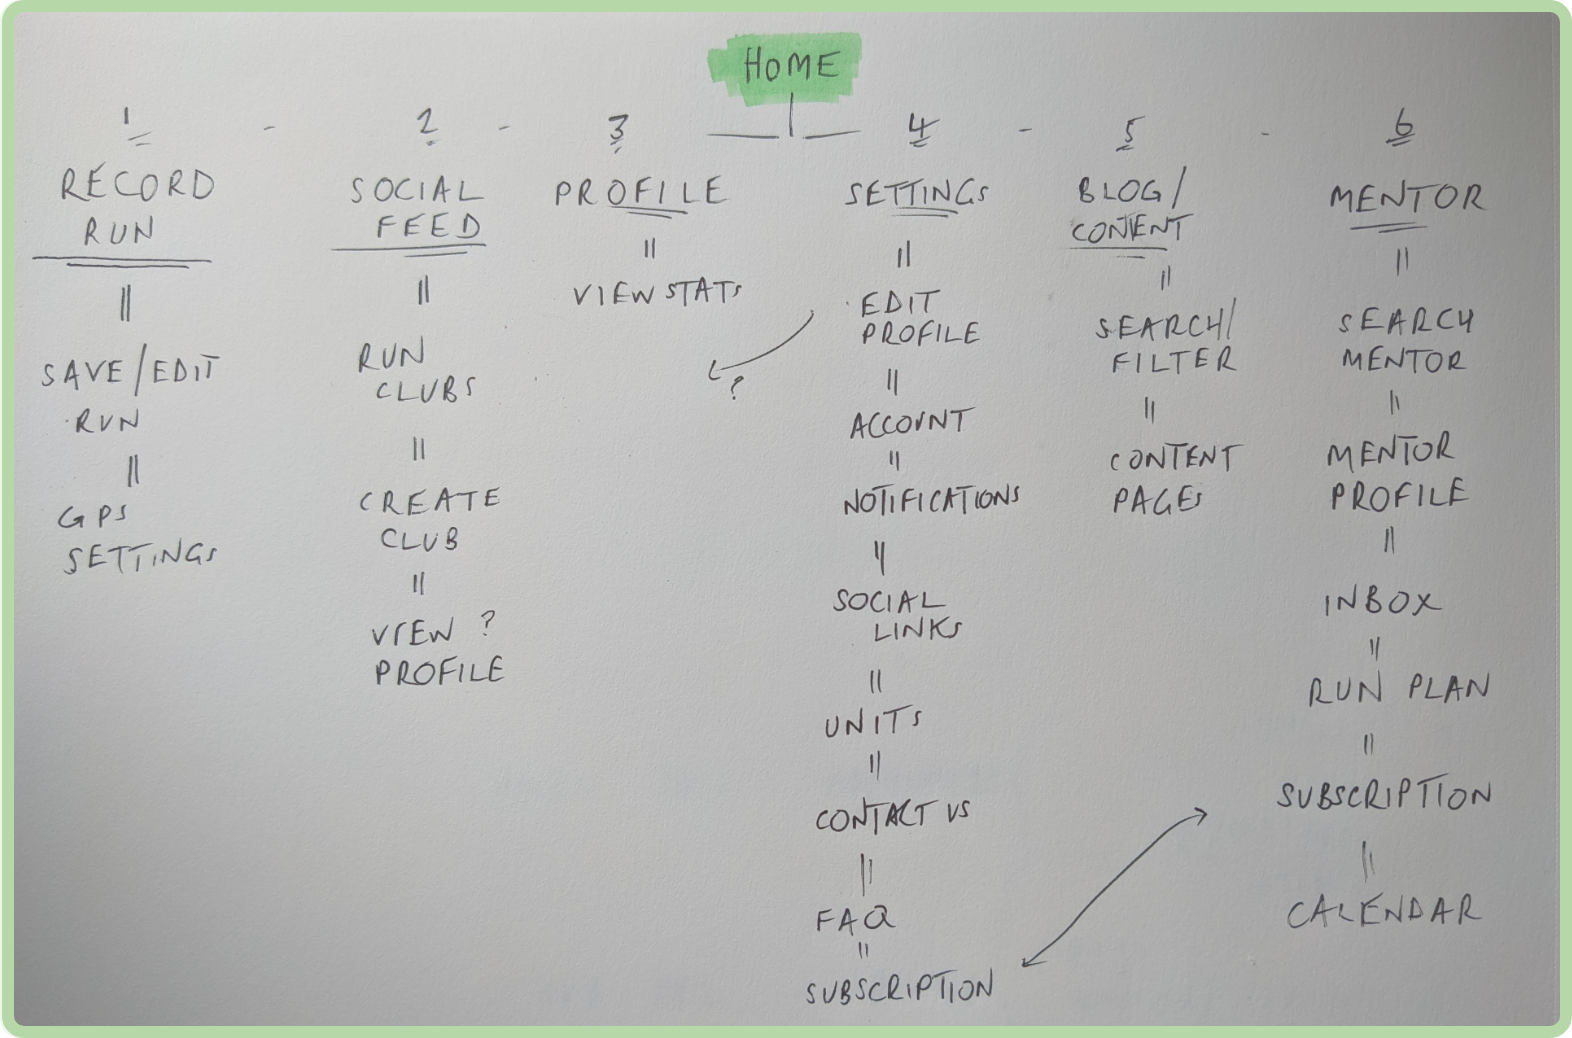 HOME
1 - 2 - 3 4 - 5 - 6
RECORD
RUN
SAVE/EDIT
RUN
GPS
SETTINGS
SOCIAL
FEED
RUN
CLUBS
CREATE
CLUB
VIEW ?
PROFILE
PROFILE
VIEW STATS
?
SETTINGS
EDIT
PROFILE
ACCOUNT
NOTIFICATIONS
SOCIAL
LINKS
UNITS
CONTACT US
FAQ
SUBSCRIPTION
BLOG/
CONTENT
SEARCH/
FILTER
CONTENT
PAGES
MENTOR
SEARCH
MENTOR
MENTOR
PROFILE
INBOX
RUN PLAN
SUBSCRIPTION
CALENDAR